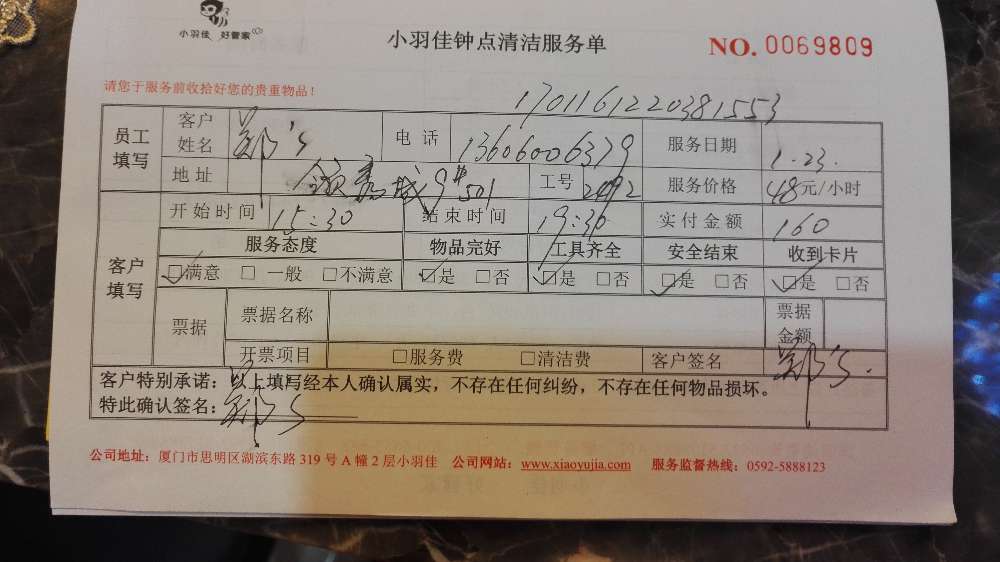 小羽佳 好管家
小羽佳钟点清洁服务单
NO. 0069809
请您于服务前收拾好您的贵重物品!
1701161220381553
员工填写 客户姓名 郑's 电话 13606006379 服务日期 1.23.
地址 9# 501 工号 服务价格 48元/小时
开始时间 15:30 结束时间 19:30 实付金额 160
客户填写 服务态度 物品完好 工具齐全 安全结束 收到卡片
☑满意 □一般 □不满意 ☑是 □否 ☑是 □否 ☑是 □否 ☑是 □否
票据 票据名称 票据金额
开票项目 □服务费 □清洁费 客户签名 郑's.
客户特别承诺:以上填写经本人确认属实,不存在任何纠纷,不存在任何物品损坏。
特此确认签名:郑's
公司地址:厦门市思明区湖滨东路 319 号 A 幢 2 层小羽佳 公司网站:www.xiaoyujia.com 服务监督热线:0592-5888123